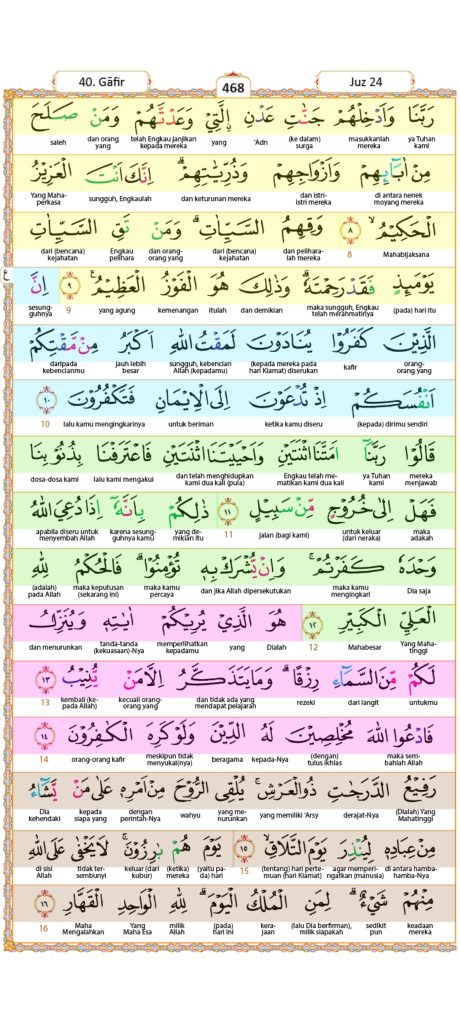 40. Gāfir
468
Juz 24
رَبَّنَا وَاَدْخِلْهُمْ جَنّٰتِ عَدْنِ ࣙالَّتِيْ وَعَدْتَّهُمْ وَمَنْ صَلَحَ
ya Tuhan kami masukkanlah mereka (ke dalam) surga 'Adn yang telah Engkau janjikan kepada mereka dan orang yang saleh
مِنْ اٰبَاۤىِٕهِمْ وَاَزْوَاجِهِمْ وَذُرِّيّٰتِهِمْ ۗ اِنَّكَ اَنْتَ الْعَزِيْزُ
di antara nenek moyang mereka dan istri-istri mereka dan keturunan mereka sungguh, Engkaulah Yang Maha-perkasa
الْحَكِيْمُ ۙ ٨ وَقِهِمُ السَّيِّاٰتِ ۗ وَمَنْ تَقِ السَّيِّاٰتِ
Mahabijaksana 8 dan pelihara-lah mereka dari (bencana) kejahatan dan orang-orang yang Engkau pelihara dari (bencana) kejahatan
ع
يَوْمَىِٕذٍ فَقَدْ رَحِمْتَهٗ ۗ وَذٰلِكَ هُوَ الْفَوْزُ الْعَظِيْمُ ࣖ ٩ اِنَّ
(pada) hari itu maka sungguh, Engkau telah merahmatinya dan demikian itulah kemenangan yang agung 9 sesung-guhnya
الَّذِيْنَ كَفَرُوْا يُنَادَوْنَ لَمَقْتُ اللّٰهِ اَكْبَرُ مِنْ مَّقْتِكُمْ
orang-orang yang kafir (kepada mereka pada hari Kiamat) diserukan sungguh, kebencian Allah (kepadamu) jauh lebih besar daripada kebencianmu
اَنْفُسَكُمْ اِذْ تُدْعَوْنَ اِلَى الْاِيْمَانِ فَتَكْفُرُوْنَ ١٠
(kepada) dirimu sendiri ketika kamu diseru untuk beriman lalu kamu mengingkarinya 10
قَالُوْا رَبَّنَآ اَمَتَّنَا اثْنَتَيْنِ وَاَحْيَيْتَنَا اثْنَتَيْنِ فَاعْتَرَفْنَا بِذُنُوْبِنَا
mereka menjawab ya Tuhan kami Engkau telah me-matikan kami dua kali dan telah menghidupkan kami dua kali (pula) lalu kami mengakui dosa-dosa kami
فَهَلْ اِلٰى خُرُوْجٍ مِّنْ سَبِيْلٍ ١١ ذٰلِكُمْ بِاَنَّهٗٓ اِذَا دُعِيَ اللّٰهُ
maka adakah untuk keluar (dari neraka) jalan (bagi kami) 11 yang de-mikian itu karena sesung-guhnya kamu apabila diseru untuk menyembah Allah
وَحْدَهٗ كَفَرْتُمْ ۚ وَاِنْ يُّشْرَكْ بِهٖ تُؤْمِنُوْا ۗ فَالْحُكْمُ لِلّٰهِ
Dia saja kamu mengingkari dan jika Allah dipersekutukan maka kamu percaya maka keputusan (sekarang ini) (adalah) pada Allah
الْعَلِيِّ الْكَبِيْرِ ١٢ هُوَ الَّذِيْ يُرِيْكُمْ اٰيٰتِهٖ وَيُنَزِّلُ
Yang Maha-tinggi Mahabesar 12 Dialah yang memperlihatkan kepadamu tanda-tanda (kekuasaan)-Nya dan menurunkan
لَكُمْ مِّنَ السَّمَاۤءِ رِزْقًا ۗ وَمَا يَتَذَكَّرُ اِلَّا مَنْ يُّنِيْبُ ١٣
untukmu dari langit rezeki dan tidak ada yang mendapat pelajaran kecuali orang-orang yang kembali (ke-pada Allah) 13
فَادْعُوا اللّٰهَ مُخْلِصِيْنَ لَهُ الدِّيْنَ وَلَوْ كَرِهَ الْكٰفِرُوْنَ ١٤
maka sem-bahlah Allah (dengan) tulus ikhlas kepada-Nya beragama meskipun tidak menyukai(nya) orang-orang kafir 14
رَفِيْعُ الدَّرَجٰتِ ذُو الْعَرْشِ ۚ يُلْقِى الرُّوْحَ مِنْ اَمْرِهٖ عَلٰى مَنْ يَّشَاۤءُ
(Dialah) Yang Mahatinggi derajat-Nya yang memiliki 'Arsy yang me-nurunkan wahyu dengan perintah-Nya kepada siapa yang Dia kehendaki
مِنْ عِبَادِهٖ لِيُنْذِرَ يَوْمَ التَّلَاقِ ۙ ١٥ يَوْمَ هُمْ بَارِزُوْنَ ۚ لَا يَخْفٰى عَلَى اللّٰهِ
di antara hamba-hamba-Nya agar memperi-ngatkan (manusia) (tentang) hari perte-muan (hari Kiamat) 15 (yaitu pa-da) hari (ketika) mereka keluar (dari kubur) tidak ter-sembunyi di sisi Allah
مِنْهُمْ شَيْءٌ ۗ لِمَنِ الْمُلْكُ الْيَوْمَ ۗ لِلّٰهِ الْوَاحِدِ الْقَهَّارِ ١٦
keadaan mereka sedikit pun (lalu Dia berfirman), milik siapakah kera-jaan (pada) hari ini milik Allah Yang Maha Esa Maha Mengalahkan 16